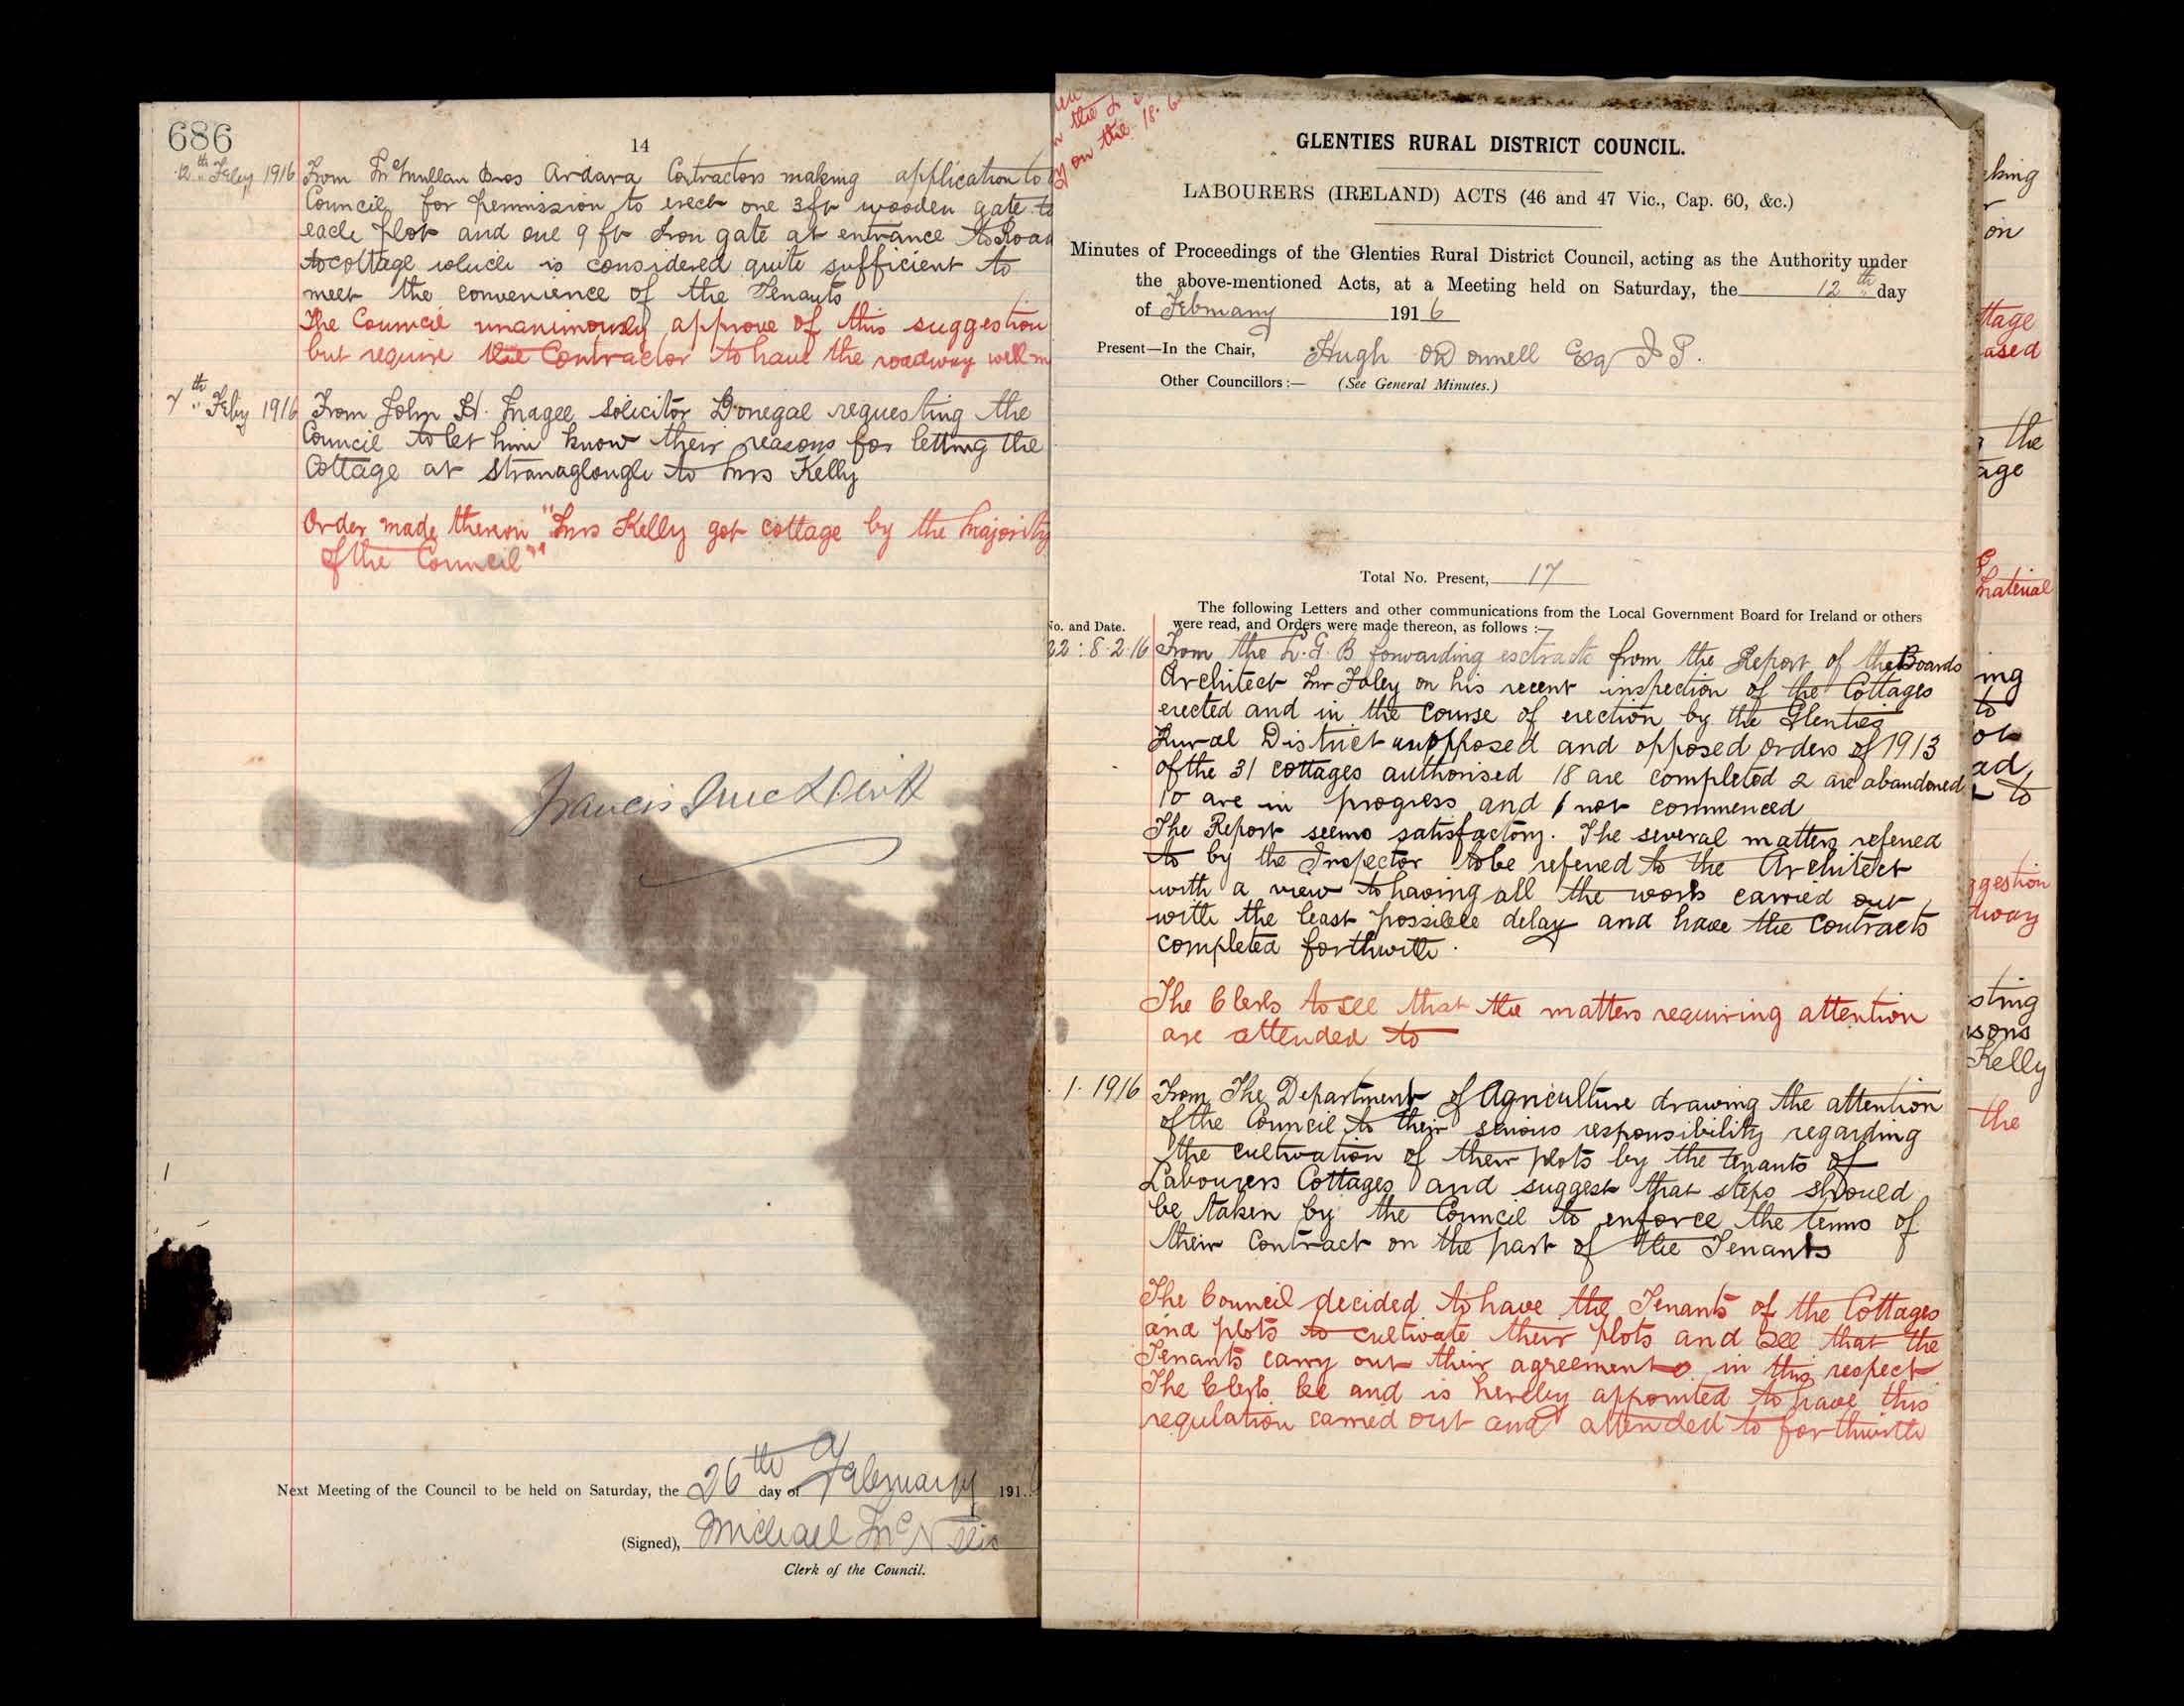 686
14
12th Feby 1916
From McMullan Bros Ardara Contractors making application to
Council for permission to erect one 3ft wooden gate to
each plot and one 9 ft Iron gate at entrance to Road
to cottage which is considered quite sufficient to
meet the convenience of the Tenants
The Council unanimously approve of this suggestion
but require the Contractor to have the roadway well m
7th Feby 1916
From John H. Magee Solicitor Donegal requesting the
Council to let him know their reasons for letting the
Cottage at Stranaglough to Mrs Kelly
Order made thereon "Mrs Kelly got cottage by the Majority
of the Council"
Francis
Next Meeting of the Council to be held on Saturday, the 26th day of February 191
(Signed), Michael McNelis
Clerk of the Council.
on the 18. 6
GLENTIES RURAL DISTRICT COUNCIL.
LABOURERS (IRELAND) ACTS (46 and 47 Vic., Cap. 60, &c.)
Minutes of Proceedings of the Glenties Rural District Council, acting as the Authority under
the above-mentioned Acts, at a Meeting held on Saturday, the 12th day
of February 1916
Present—In the Chair, Hugh O'Donnell Esq J.P.
Other Councillors:— (See General Minutes.)
Total No. Present, 17
The following Letters and other communications from the Local Government Board for Ireland or others
No. and Date.
were read, and Orders were made thereon, as follows :—
22 : 8.2.16
From the L.G.B forwarding esctract from the Report of the Boards
Architect Mr Foley on his recent inspection of the Cottages
erected and in the course of erection by the Glenties
Rural District unopposed and opposed orders of 1913
of the 31 cottages authorised 18 are completed 2 are abandoned
10 are in progress and 1 not commenced
The Report seems satisfactory. The several matters refened
to by the Inspector to be refened to the Architect
with a view to having all the work carried out
with the least possible delay and have the contracts
completed forthwith.
The Clerk to see that the matters requiring attention
are attended to
. 1. 1916
From The Department of Agriculture drawing the attention
of the Council to their serious responsibility regarding
the cultivation of their plots by the tenants of
Labourers Cottages and suggest that steps should
be taken by the Council to enforce the terms of
their Contract on the part of the Tenants
The Council decided to have the Tenants of the Cottages
and plots to cultivate their plots and see that the
Tenants carry out their agreements in this respect
The Clerk be and is hereby appointed to have this
regulation carried out and attended to forthwith
king
on
ttage
ased
the
age
Material
ing
to
ad
to
ggestion
dway
sting
sons
Kelly
the